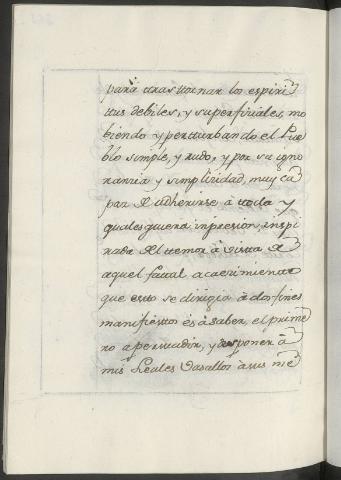 para trasttornar los espiri
ttus debiles, y superficiales, mo
biendo y pertturbando el Pue
blo simple, y rudo, y por su igno
rancia y simplicidad, muy ca
paz de adherirse à ttoda y
qualesquiera inpresion, inspi
rada del ttemor à vistta de
aquel fattal acaecimientto
que estto se dirigia à dos fines
manifiesttos es à saber, el prime
ro apersuadir, y disponer à
mis Leales Vasallos à sus me